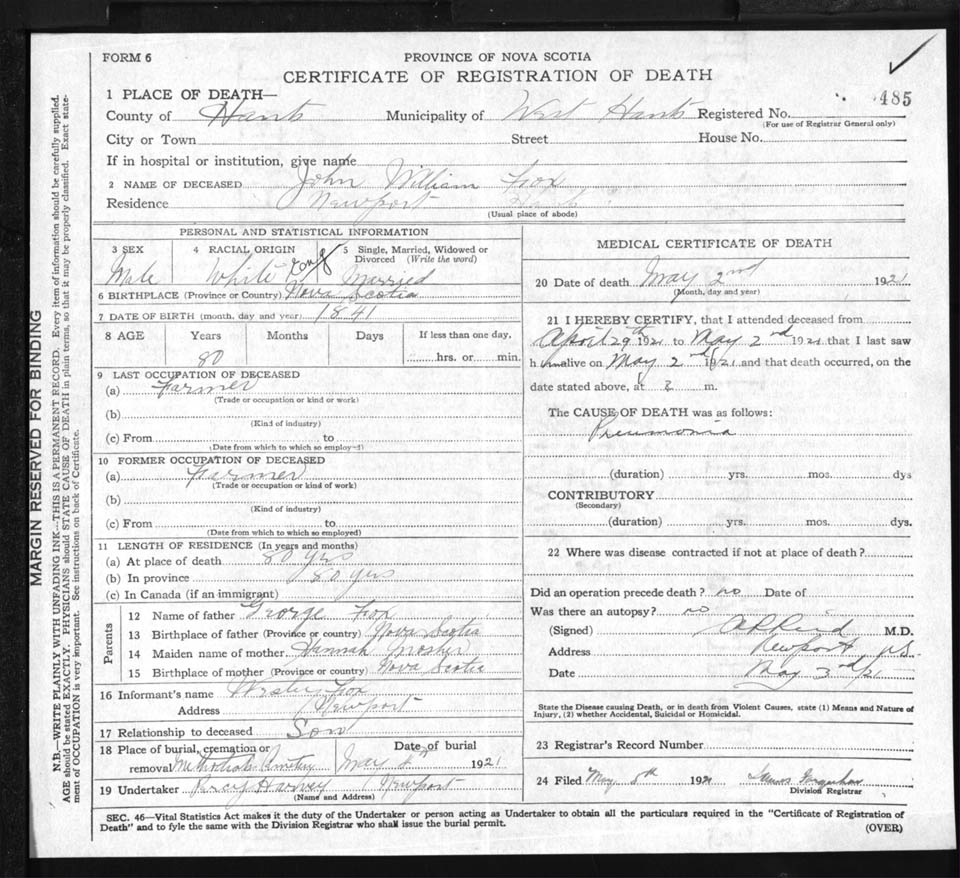 FORM 6
PROVINCE OF NOVA SCOTIA
CERTIFICATE OF REGISTRATION OF DEATH
485
1 PLACE OF DEATH—
County of Hants Municipality of West Hants Registered No.
(For use of Registrar General only)
City or Town Street House No.
If in hospital or institution, give name
2 NAME OF DECEASED John William Fox
Residence Newport Hants
(Usual place of abode)
PERSONAL AND STATISTICAL INFORMATION
3 SEX 4 RACIAL ORIGIN 5 Single, Married, Widowed or Divorced (Write the word)
Male White Eng Married
6 BIRTHPLACE (Province or Country) Nova Scotia
7 DATE OF BIRTH (month, day and year) 1841
8 AGE Years Months Days If less than one day,
80 hrs. or min.
9 LAST OCCUPATION OF DECEASED
(a) Farmer
(Trade or occupation or kind or work)
(b)
(Kind of industry)
(c) From to
(Date from which to which so employed)
10 FORMER OCCUPATION OF DECEASED
(a) Farmer
(Trade or occupation or kind of work)
(b)
(Kind of industry)
(c) From to
(Date from which to which so employed)
11 LENGTH OF RESIDENCE (In years and months)
(a) At place of death 80 yrs
(b) In province 80 yrs
(c) In Canada (if an immigrant)
Parents
12 Name of father George Fox
13 Birthplace of father (Province or country) Nova Scotia
14 Maiden name of mother Hannah Mosher
15 Birthplace of mother (Province or country) Nova Scotia
16 Informant's name Fox
Address Newport
17 Relationship to deceased Son
18 Place of burial, cremation or removal Methodist Cemetery Date of burial May 1921
19 Undertaker Percy Harvey Newport
(Name and Address)
MEDICAL CERTIFICATE OF DEATH
20 Date of death May 2nd 1921
(Month, day and year)
21 I HEREBY CERTIFY, that I attended deceased from
April 29th 1921 to May 2nd 1921 that I last saw
him alive on May 2nd 1921 and that death occurred, on the
date stated above, at m.
The CAUSE OF DEATH was as follows:
Pneumonia
(duration) yrs. mos. dys
CONTRIBUTORY
(Secondary)
(duration) yrs. mos. dys.
22 Where was disease contracted if not at place of death?
Did an operation precede death? no Date of
Was there an autopsy? no
(Signed) A R Reid M.D.
Address Newport N.S.
Date May 3rd/21
State the Disease causing Death, or in death from Violent Causes, state (1) Means and Nature of
Injury, (2) whether Accidental, Suicidal or Homicidal.
23 Registrar's Record Number
24 Filed May 5th 1921 James Farquhar
Division Registrar
SEC. 46—Vital Statistics Act makes it the duty of the Undertaker or person acting as Undertaker to obtain all the particulars required in the "Certificate of Registration of
Death" and to fyle the same with the Division Registrar who shall issue the burial permit.
(OVER)
MARGIN RESERVED FOR BINDING
N.B.—WRITE PLAINLY WITH UNFADING INK—THIS IS A PERMANENT RECORD. Every item of information should be carefully supplied.
AGE should be stated EXACTLY. PHYSICIANS should STATE CAUSE OF DEATH in plain terms, so that it may be properly classified. Exact state-
ment of OCCUPATION is very important. See instructions on back of Certificate.